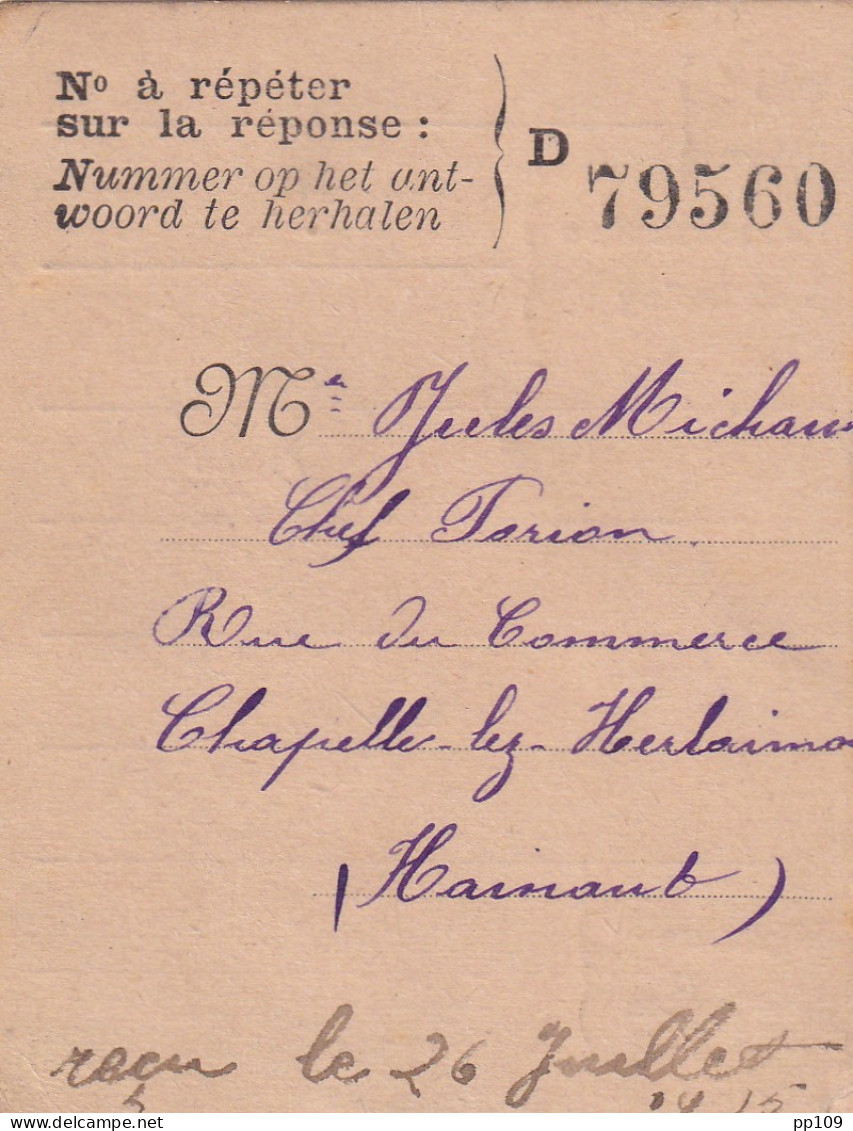 Nº à répéter
sur la réponse :
Nummer op het ant-
woord te herhalen
D 79560
Mr Jules Michaux
Chef Porion
Rue du Commerce
Chapelle-lez-Herlaimo
(Hainaut)
reçu le 26 Juillet
1915
pp109